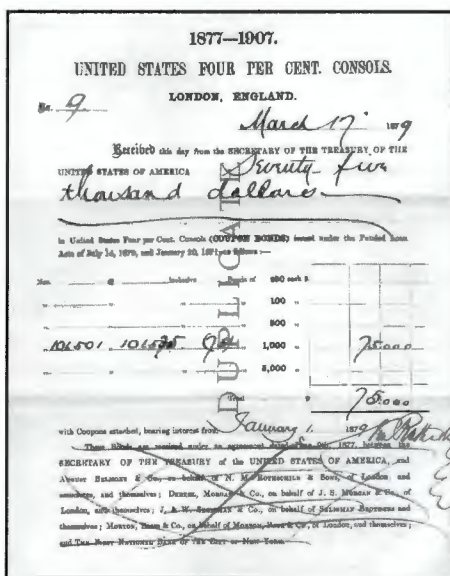 1877—1907.
UNITED STATES FOUR PER CENT. CONSOLS.
LONDON, ENGLAND.
No. 9
March 17 1879
Received this day from the SECRETARY OF THE TREASURY OF THE
UNITED STATES OF AMERICA Seventy five
thousand dollars
in United States Four per Cent. Consols (COUPON BONDS) issued under the Funded Loan
Acts of July 14, 1870, and January 20, 1871, as follows:—
Nos. @ inclusive Bonds of $50 each $
" " " 100 "
" " " 500 "
106501 106575 75 1,000 " 75.000
" " " 5,000 "
Total $ 75.000
DUPLICATE
with Coupons attached, bearing interest from January 1. 1879
These Bonds are received under an agreement dated 9th, 1877, between the
SECRETARY OF THE TREASURY of the UNITED STATES OF AMERICA, and
AUGUST BELMONT & Co., on behalf of N. M. ROTHSCHILD & SONS, of London and
associates, and themselves; DREXEL, MORGAN & Co., on behalf of J. S. MORGAN & Co., of
London, and themselves; J. & W. SELIGMAN & Co., on behalf of SELIGMAN BROTHERS and
themselves; MORTON, BLISS & Co., on behalf of MORTON, ROSE & Co., of London, and themselves;
and THE FIRST NATIONAL BANK OF THE CITY OF NEW YORK.